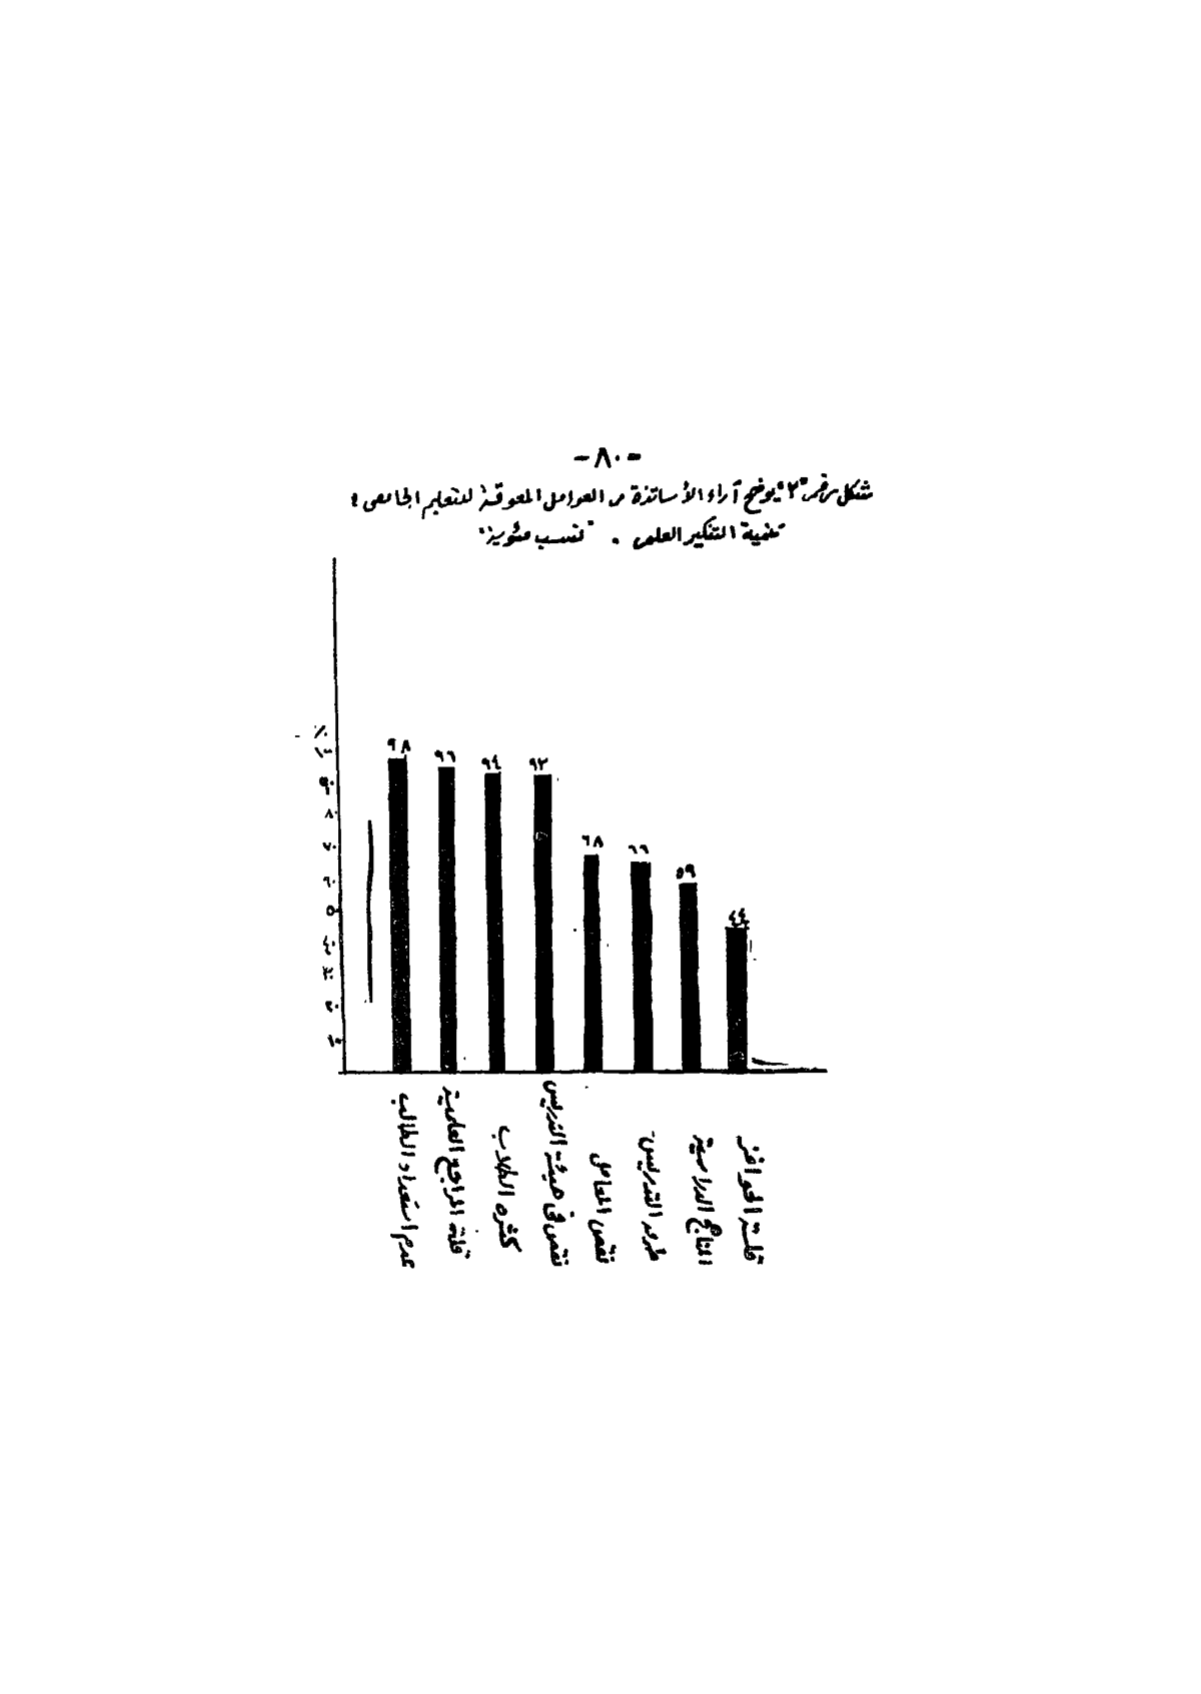 -٨٠-
شكل رقم "٢" يوضح آراء الأساتذة من العوامل المعوقة للتعليم الجامعى
تنمية التفكير العلمى . "نسب مئوية"
٪
٩٠
٨٠
٧٠
٦٠
٥٠
٤٠
٣٠
٢٠
١٠
٩٨
٩٦
٩٤
٩٢
٦٨
٦٦
٥٩
٤٤
عدم استعداد الطالب
قلة المراجع العلمية
كثره الطلاب
نقص فى هيئة التدريس
نقص المعامل
طرق التدريس
المناهج الدراسية
قلة الحوافز